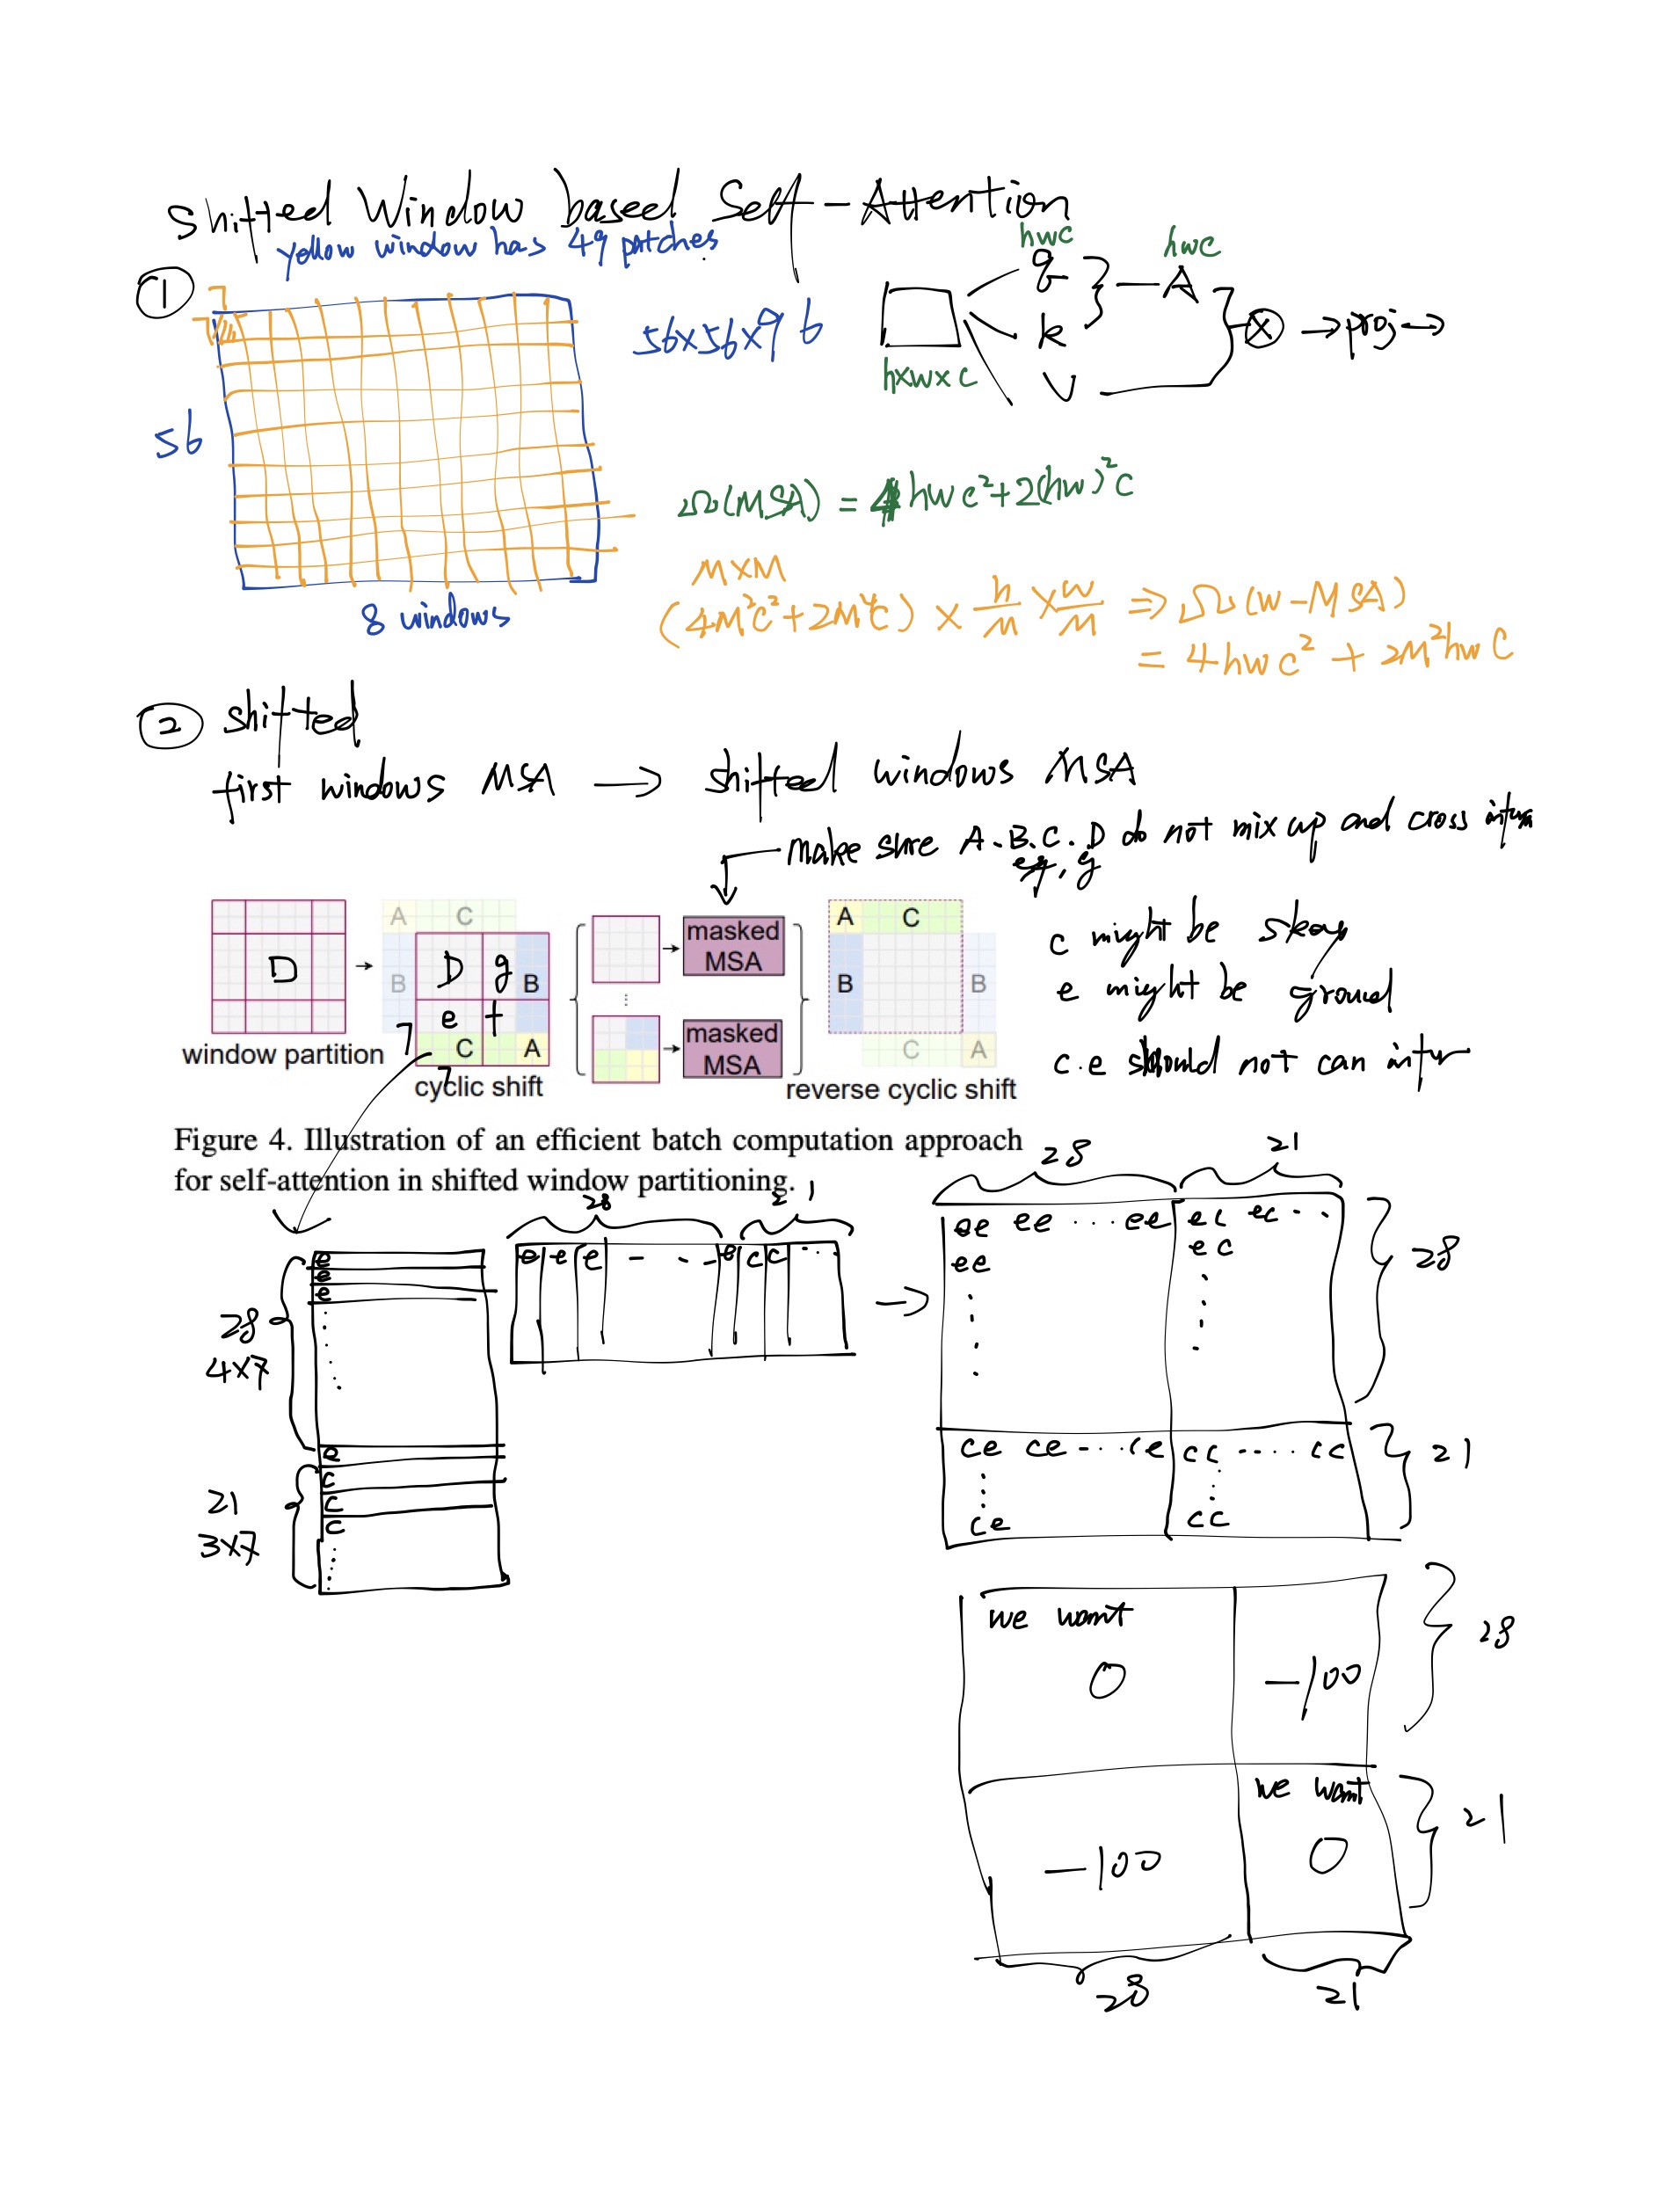 Shifted Window based Self-Attention
yellow window has 49 patches.
①
7
7
56
8 windows
56x56x96
hwc
hwc
q
k
v
A
⊗ → proj →
hxwxc
Ω(MSA) = 4hwc²+2(hw)²c
MxM
(4M²c²+2M⁴c) × h/M × w/M ⇒ Ω(W-MSA)
= 4hwc² + 2M²hwc
② shifted
first windows MSA → shifted windows MSA
make sure A.B.C.D do not mix up and cross
g
A C
D
B
D g B
e f
7
C A
7
masked
MSA
masked
MSA
A C
B B
C A
window partition
cyclic shift
reverse cyclic shift
c might be
e might be ground
c.e should not can
Figure 4. Illustration of an efficient batch computation approach
for self-attention in shifted window partitioning.
28
4x7
21
3x7
e
e
e
e
c
c
c
28 21
e e e - - - e c c ...
→
28 21
ee ee ... ee ec ec ..
ee ec
28
ce ce ... ce cc .... cc
ce cc
21
we want
0 -100
28
we want
-100 0
21
28 21